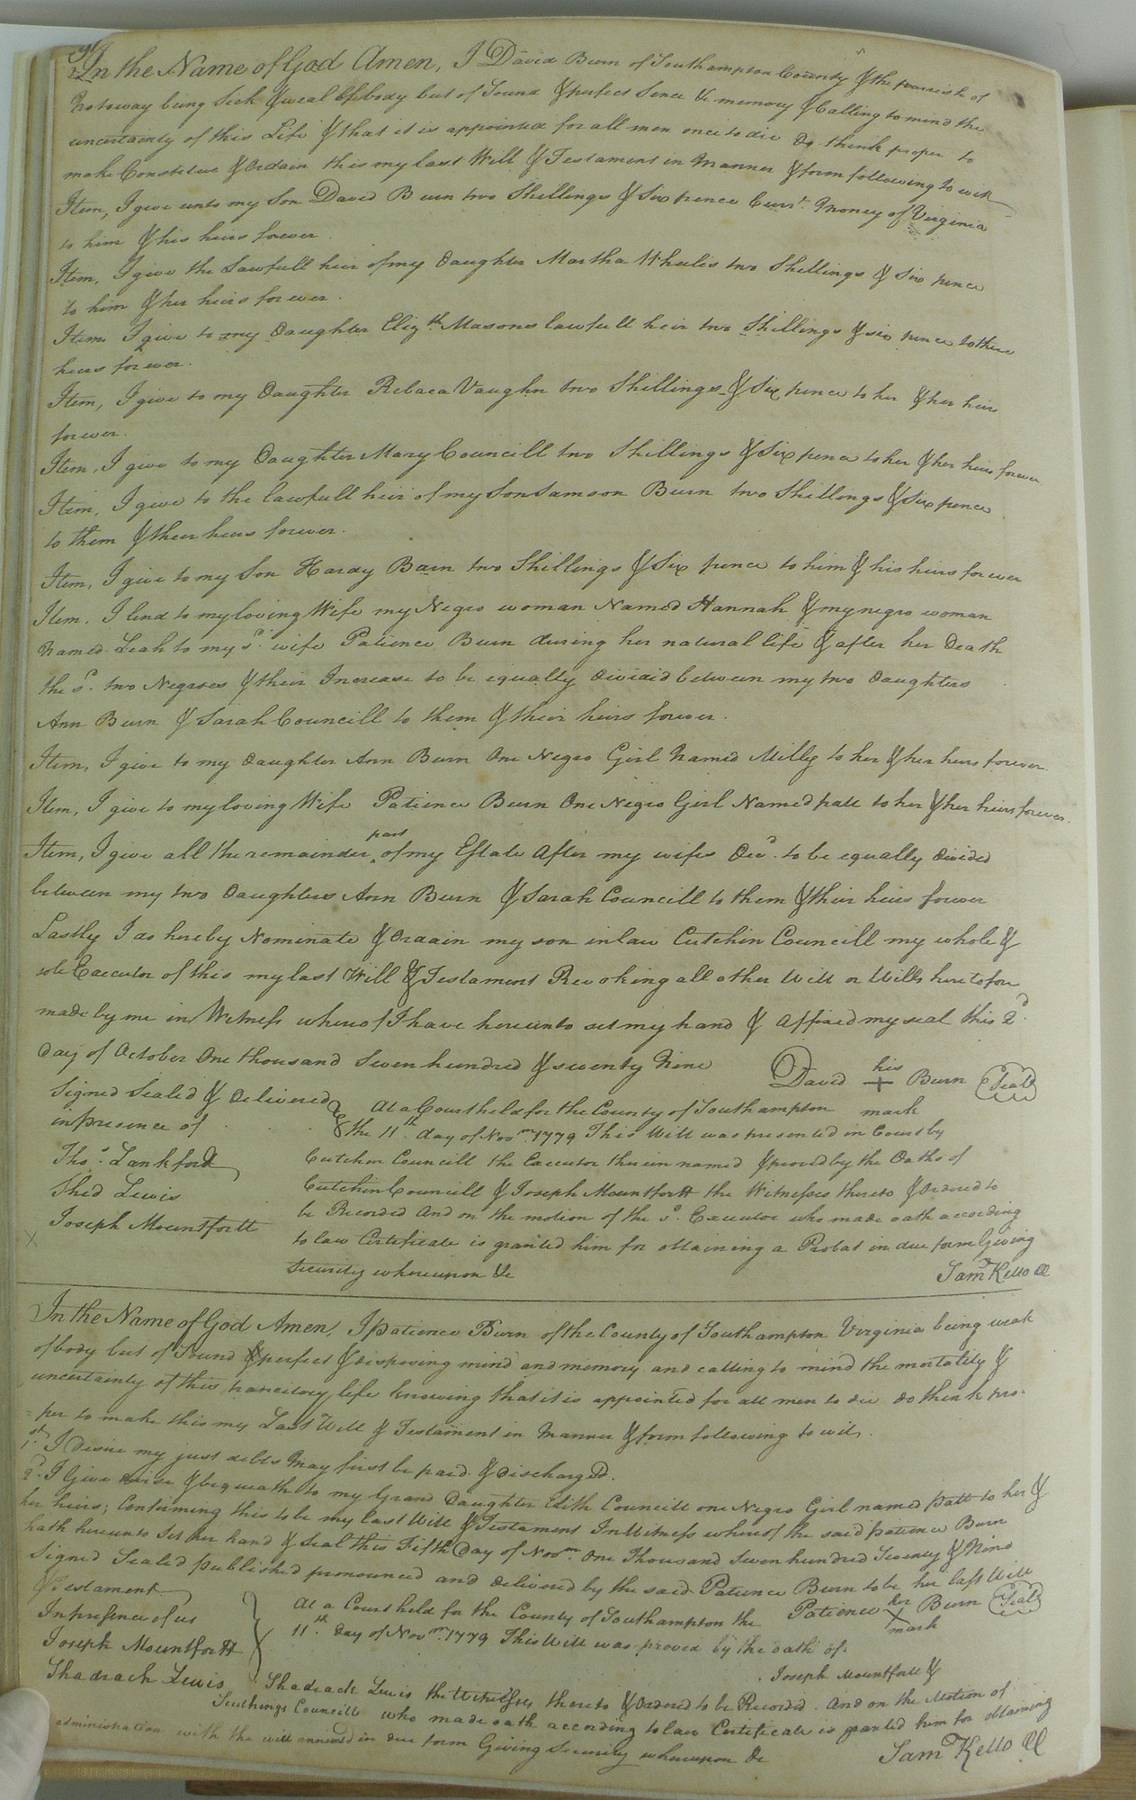 In the Name of God Amen, I David Burn of Southampton County & the parrish of
Notoway being Sick & weak of body but of Sound & perfect Sence & memory & Calling to mind the
uncertainty of this Life & that it is appointed for all men once to die Do think proper to
make Constitue & Ordain this my last Will & Testament in Manner & form following to wit
Item, I give unto my Son David Burn two Shillings & Six pence Curt. Money of Virginia
to him & his heirs forever.
Item, I give the Lawfull heir of my Daughter Martha Wheelis two Shillings & Six pence
to him & her heirs for ever.
Item I give to my Daughter Elizth. Masons lawfull heir two Shillings & six pence to their
heirs forever.
Item, I give to my Daughter Rebaca Vaughn two Shillings & Six pence to her & her heirs
forever.
Item, I give to my Daughter Mary Councill two Shillings & Six pence to her & her heirs forever
Item, I give to the lawfull heir of my Son Samson Burn two Shillings & Six pence
to them & their heirs forever.
Item, I give to my Son Hardy Burn two Shillings & Six pence to him & his heirs forever
Item. I lend to my loving Wife my Negro woman Named Hannah & my negro woman
Named Leah to my sd. wife Patience Burn during her natural life & after her Death
the sd. two Negroes & their Increase to be equally divided between my two Daughters
Ann Burn & Sarah Councill to them & their heirs forever.
Item, I give to my Daughter Ann Burn One Negro Girl Named Milly to her & her heirs forever.
Item, I give to my loving Wife Patience Burn One Negro Girl Named patt to her & her heirs forever.
Item, I give all the remainder part of my Estate After my wifes Decd. to be equally divided
between my two Daughters Ann Burn & Sarah Councill to them & their heirs forever
Lastly I do hereby Nominate & Ordain my son in law Cutchin Councill my whole &
sole Executor of this my last Will & Testament Revoking all other Will or Wills heretofore
made by me in Witness whereof I have hereunto set my hand & affixed my seal this 2d.
day of October One thousand Seven hundred & seventy Nine
David his + mark Burn (Seal)
Signed Sealed & Delivered
in presence of
Thos. Lankford
Shed Lewis
Joseph Mountfortt
At a Court held for the County of Southampton
the 11th. day of Novr. 1779 This Will was presented in Court by
Cutchin Councill the Executor therein named & proved by the Oaths of
Cutchin Councill & Joseph Mountfortt the Witnesses thereto & Ordered to
be Recorded And on the motion of the sd. Executor who made oath according
to law Certificate is granted him for obtaining a Probat in due form Giving
Security whereupon &c
Saml Kello Cl
In the Name of God Amen, I patience Burn of the County of Southampton Virginia being weak
of body but of Sound & perfect & disposing mind and memory and calling to mind the mortality &
uncertainty of this transitory life knowing that it is appointed for all men to die do think pro-
per to make this my Last Will & Testament in Manner & form following to wit,
1st. I desire my just debts May first be paid & discharged.
2d. I Give & bequeath to my Grand Daughter Edith Councill one Negro Girl named Patt to her &
her heirs; Confirming this to be my last Will & Testament In Witness whereof the said patience Burn
hath hereunto Set her hand & Seal this Fifth Day of Novr. One Thousand Seven hundred Seventy & Nine
Signed Sealed published pronounced and delivered by the said Patience Burn to be her last Will
& Testament
In presence of us
Joseph Mountfortt
Shadrach Lewis
Patience her X mark Burn (Seal)
At a Court held for the County of Southampton the
11th. day of Novr. 1779 This Will was proved by the oath of
Joseph Mountfortt &
Shadrach Lewis the Witnesses thereto & Ordered to be Recorded. And on the Motion of
Councill who made oath according to law Certificate is granted him for obtaining
administration with the will annexed in due form Giving Security whereupon &c
Saml Kello Cl